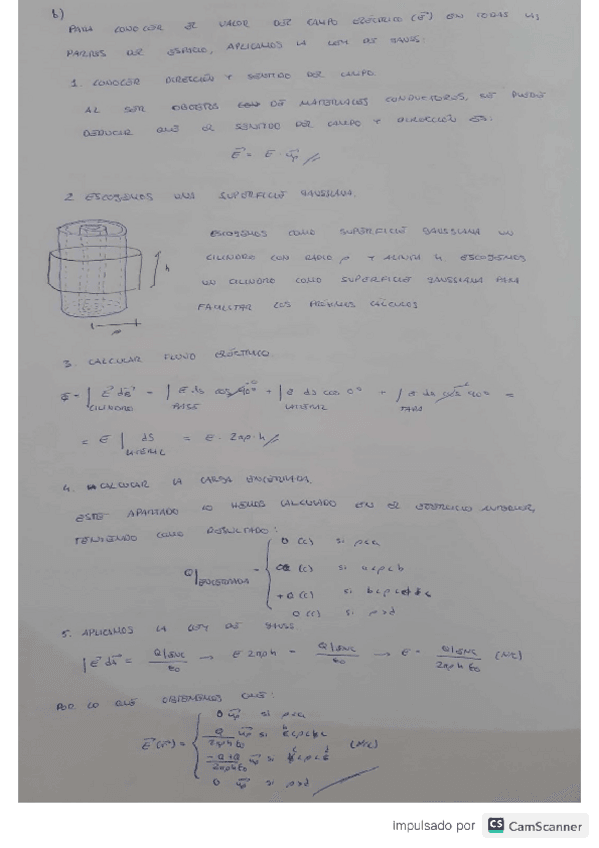 b)
PARA CONOCER EL VALOR DEL CAMPO ELÉCTRICO (E⃗) EN TODAS LAS
PARTES DEL ESPACIO, APLICAMOS LA LEY DE GAUSS:
1. CONOCER DIRECCIÓN Y SENTIDO DEL CAMPO.
AL SER OBJETOS DE MATERIALES CONDUCTORES, SE PUEDE
DEDUCIR QUE EL SENTIDO DEL CAMPO Y DIRECCIÓN ES:
E⃗ = E · u⃗ρ //
2 ESCOGEMOS UNA SUPERFICIE GAUSSIANA.
ESCOGEMOS COMO SUPERFICIE GAUSSIANA UN
CILINDRO CON RADIO ρ Y ALTURA h. ESCOGEMOS
UN CILINDRO COMO SUPERFICIE GAUSSIANA PARA
FACILITAR LOS PRÓXIMOS CÁLCULOS
h
ρ
3. CALCULAR FLUJO ELÉCTRICO.
ϕ = ∫CILINDRO E⃗ ds⃗ = ∫BASE E ds cos 90° + ∫LATERAL E ds cos 0° + ∫TAPA E ds cos 90° =
= E ∫LATERAL ds = E · 2πρ·h //
4. CALCULAR LA CARGA ENCERRADA.
ESTE APARTADO LO HEMOS CALCULADO EN EL EJERCICIO ANTERIOR,
TENIENDO COMO RESULTADO:
0 (C) si ρ<a
Q|ENCERRADA = (C) si a<ρ<b
+Q (C) si
0 (C) si ρ>d
5. APLICAMOS LA LEY DE GAUSS.
∫E⃗ ds⃗ = Q|ENC / ε0 → E 2πρh = Q|ENC / ε0 → E = Q|ENC / 2πρh ε0 (N/C)
POR LO QUE OBTENEMOS QUE:
0 u⃗ρ si ρ<a
E⃗(r⃗) = Q / 2πρhε0 u⃗ρ si
-Q+Q / 2πρhε0 u⃗ρ si (N/C)
0 u⃗ρ si ρ>d
impulsado por CS CamScanner